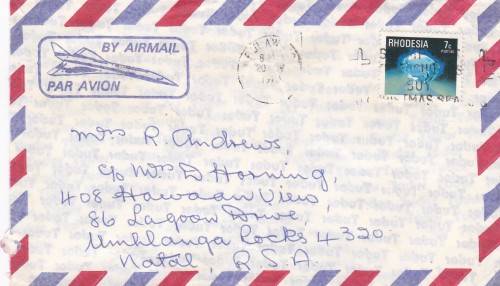 BY AIRMAIL
PAR AVION
RHODESIA 7c
POSTAGE
501
Mrs R. Andrews,
c/o Mrs D Horning,
408 Hawaan View,
86 Lagoon Drive,
Umhlanga Rocks 4320
Natal, R.S.A.